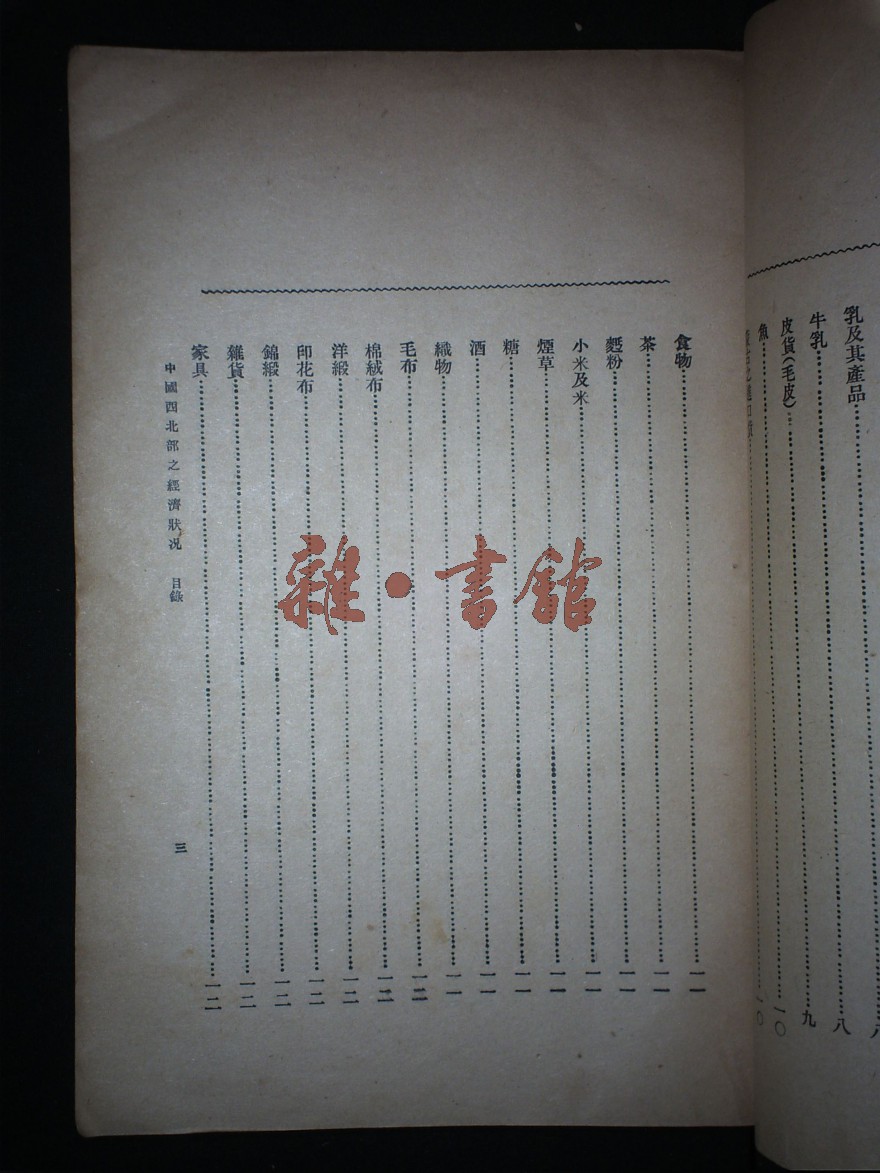 乳及其產品……八
牛乳……九
皮貨(毛皮)……一〇
魚……一〇
食物……一一
茶……一一
麪粉……一一
小米及米……一一
煙草……一一
糖……一一
酒……一一
織物……一一
毛布……一二
棉絨布……一二
洋緞……一二
印花布……一二
錦緞……一二
雜貨……一二
家具……一二
中國西北部之經濟狀况 目錄
三
雜·書館